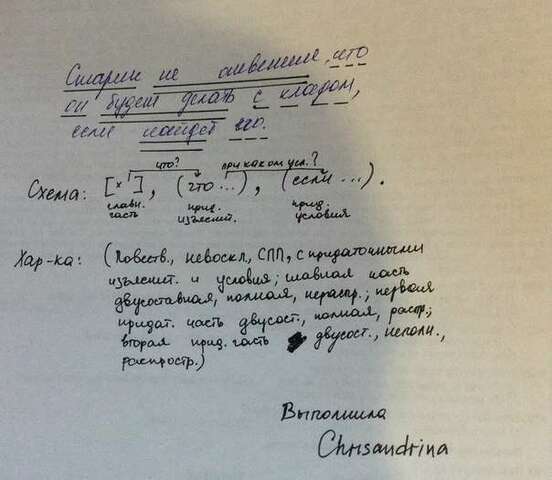 Старик не ответил, что
он будет делать с кладом,
если найдет его.
что? при каком усл.?
Схема: [× ], (что ...), (если ...).
главн. часть прид. изъяснит. прид. условия
Хар-ка: (Повеств., невоскл, СПП, с придаточными
изъяснит. и условия; главная часть
двусоставная, полная, нераспр.; первая
придат. часть двусост., полная, распр.;
вторая прид. часть двусост., неполн.,
распростр.)
Выполнила
Chrisandrina